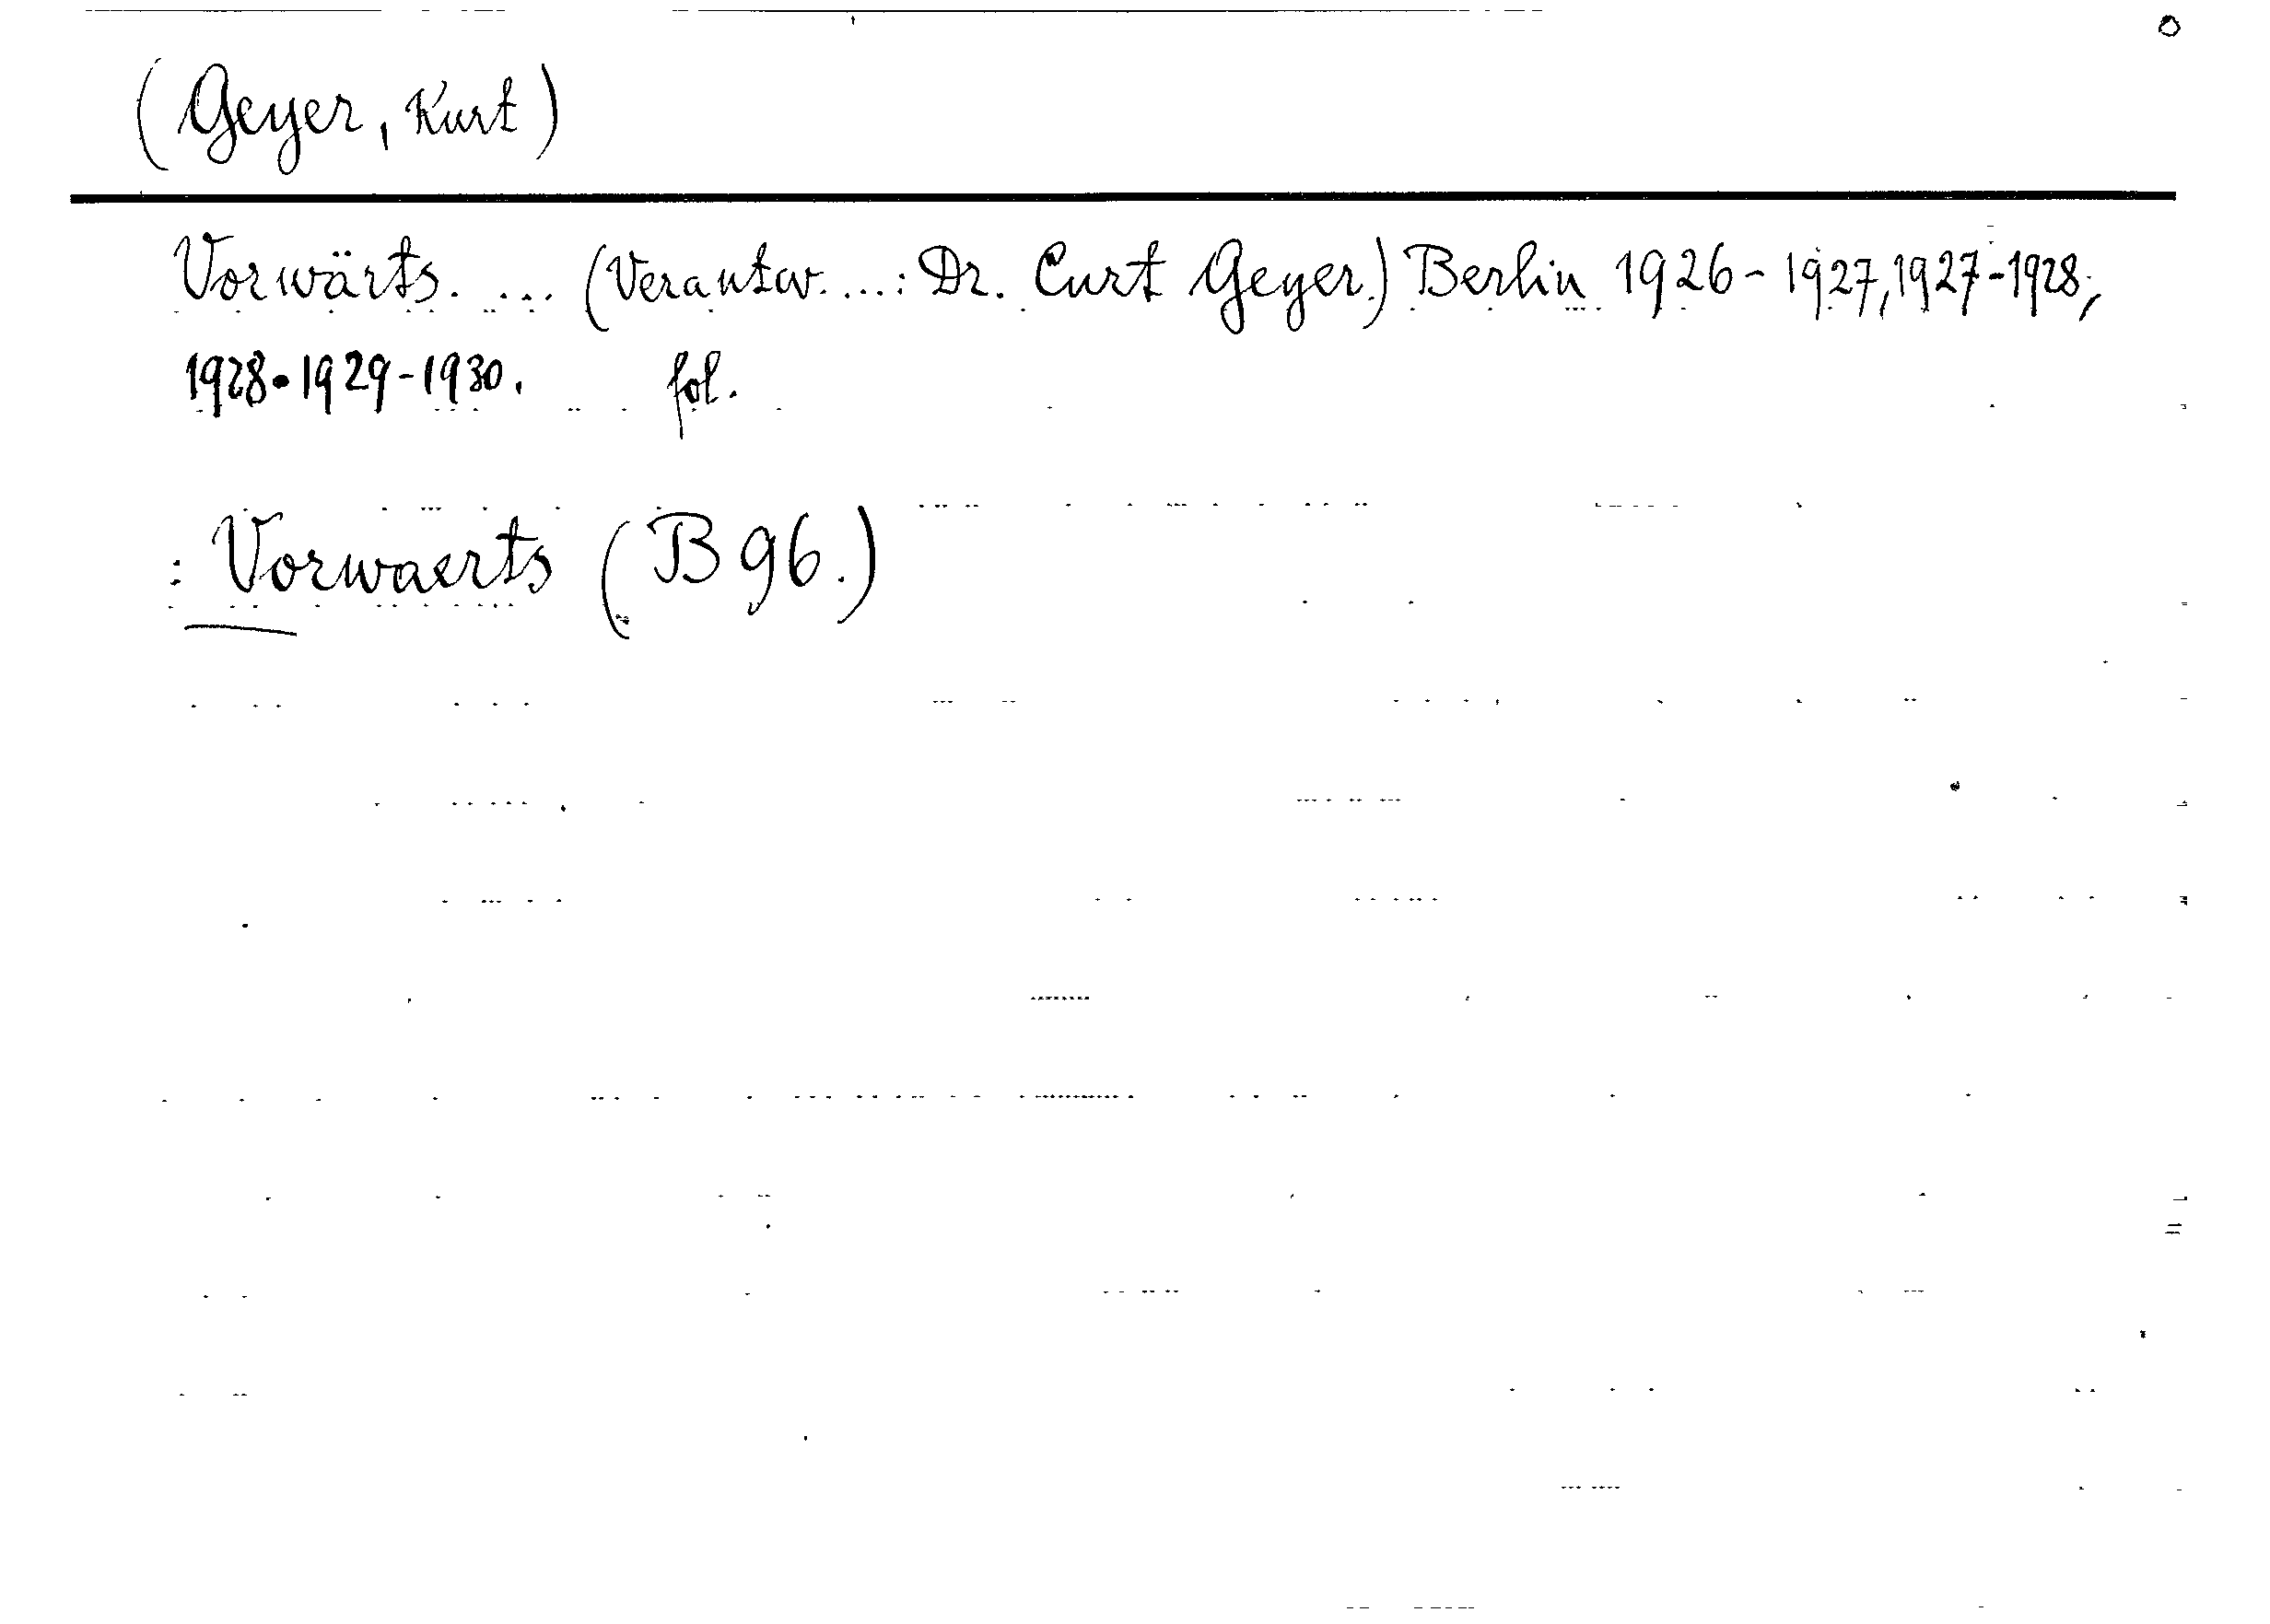 (Geyer, Kurt)
Vorwärts. ... (Verantw. ...: Dr. Curt Geyer.) Berlin 1926-1927, 1927-1928;
1928.1929-1930. fol.
: Vorwaerts (B 96.)